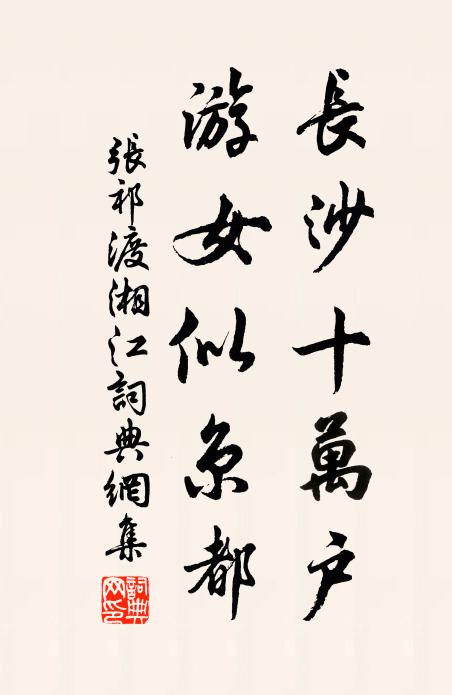 長沙十萬户
游女似京都
張祁渡湘江詞典網集
詞典網印